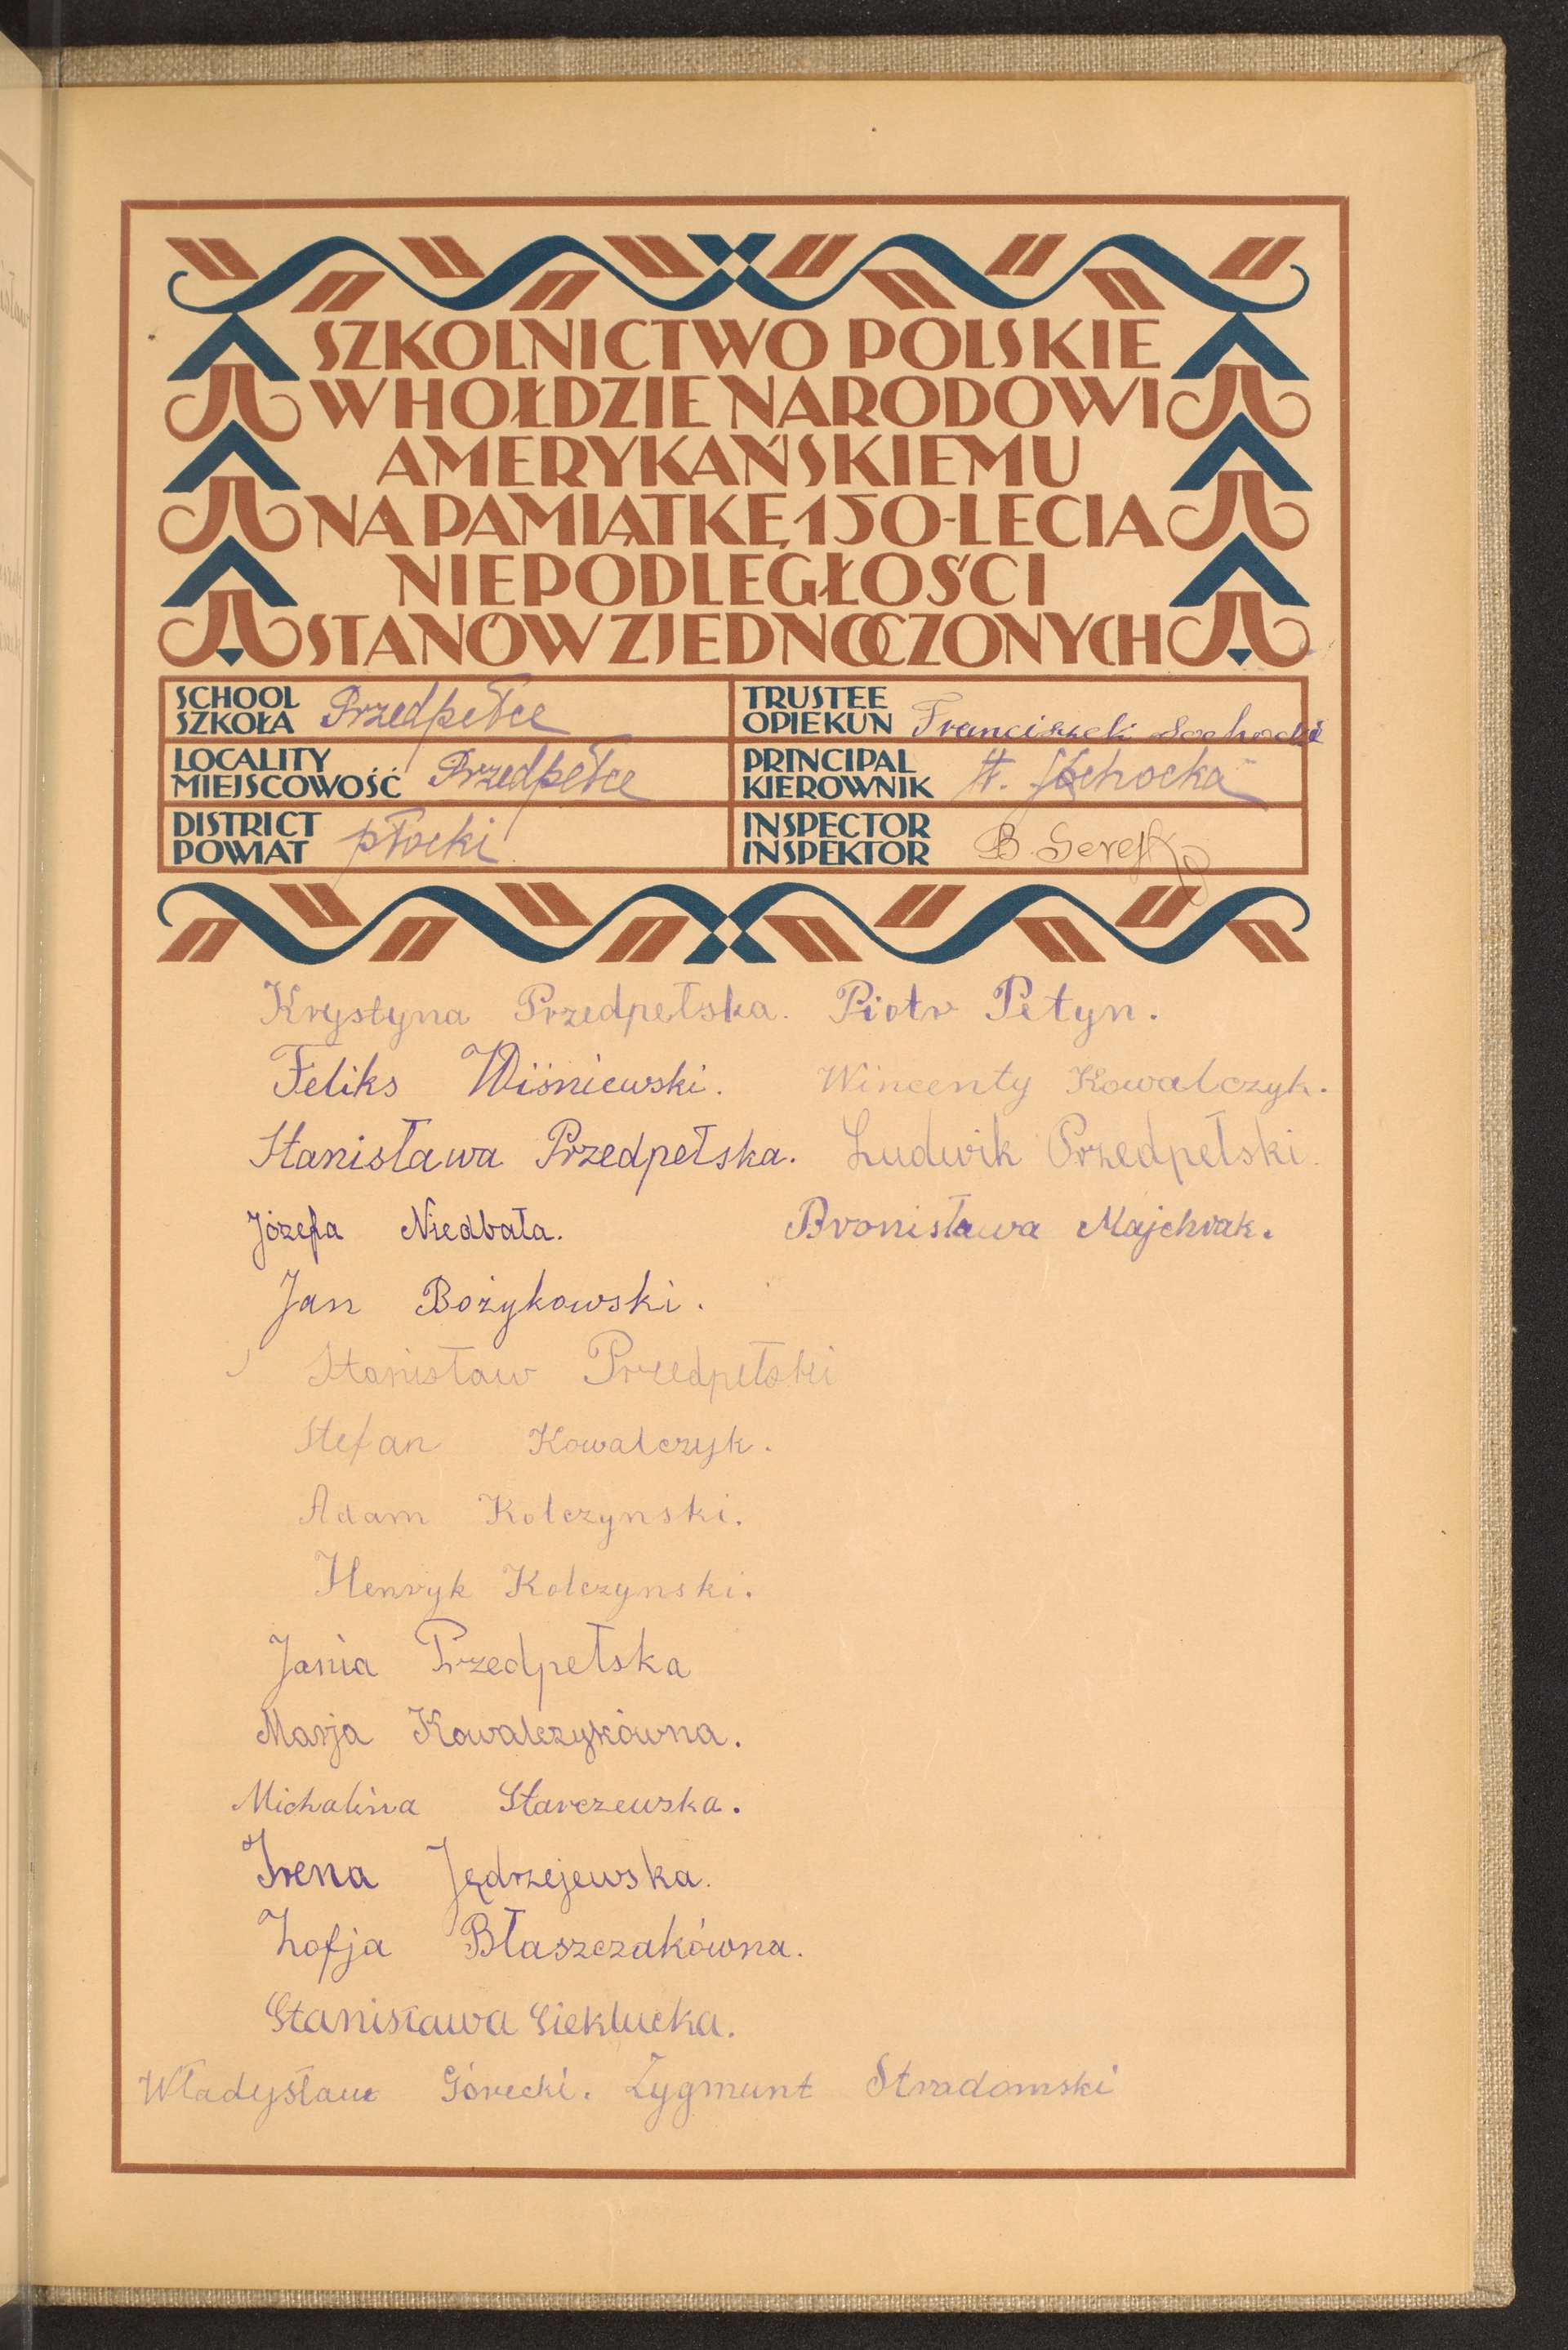 SZKOLNICTWO POLSKIE
W HOŁDZIE NARODOWI
AMERYKAŃSKIEMU
NA PAMIĄTKĘ 150-LECIA
NIEPODLEGŁOŚCI
STANÓW ZJEDNOCZONYCH
SCHOOL SZKOŁA Przedpełce
TRUSTEE OPIEKUN Franciszek Sochocki
LOCALITY MIEJSCOWOŚĆ Przedpełce
PRINCIPAL KIEROWNIK Sochocka
DISTRICT POWIAT płocki
INSPECTOR INSPEKTOR B.
Krystyna Przedpełska. Piotr Petyn.
Feliks Wiśniewski. Wincenty Kowalczyk.
Stanisława Przedpełska. Ludwik Przedpełski.
Józefa Niedbała. Bronisława Majchrak.
Jan Bożykowski.
Stanisław Przedpełski
Stefan Kowalczyk.
Adam Kolczynski.
Henryk Kolczynski.
Jania Przedpełska
Marja Kowalczykówna.
Michalina Starczewska.
Irena Jędrzejewska.
Zofja Błaszczakówna.
Stanisława Sieklucka.
Władysław Górecki. Zygmunt Stradomski